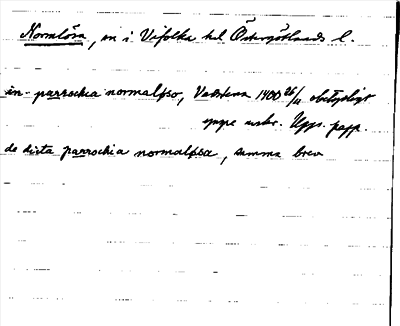 Normlösa, sn i Vifolka hd Östergötlands l.
in parrochia normaløso, Vadstena 1400 26/11 obetydligt
yngre avskr. Upps. papp.
de dicta parrochia normaløsa, samma brev